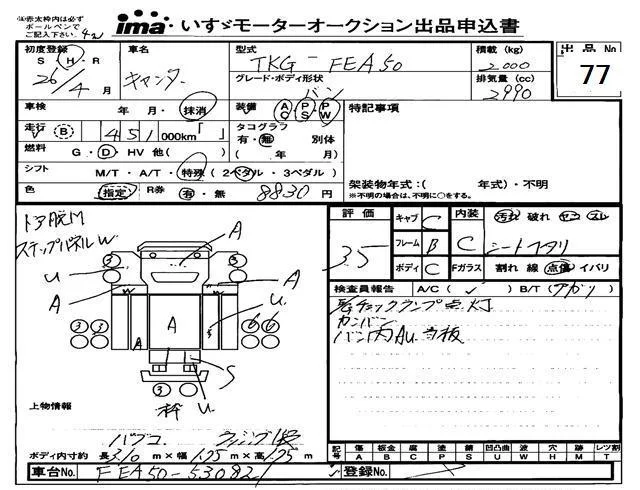 ㊟赤太枠内は必ず
ボールペンで
ご記入下さい。
ima いすゞモーターオークション出品申込書
出品No
77
初度登録 S・H・R
26/4月
車名
キャンター
型式
TKG-FEA50
グレード・ボディ形状
バン
積載(kg)
2000
排気量(cc)
2990
車検 年・月・抹消
装備 AC PS PW
特記事項
走行 B 451 000km「 」
タコグラフ
有・無 別体
( 年 月)
燃料 G・D・HV 他( )
シフト M/T・A/T・特殊(2ペダル・3ペダル)
色 指定 R券 有・無 8830円
架装物年式:( 年式)・不明
※不明の場合は、不明に〇をする。
トア脱M
ステップパネルW
A
U
A
A
U
A
A
S
U
3 3
3 3
3
枠
上物情報
パブコ
ボディ内寸約 長310m×幅175m×高175m
車台No. FEA50-530821
登録No.
評価
3.5
キャブ C
フレーム B
ボディ C
内装 C
汚れ 破れ ヤコ スレ
シートヘタリ
Fガラス 割れ 線 点傷 イバリ
検査員報告 A/C( ✓ ) B/T(アガリ)
チェックランプ点灯
カンバン
バン内Au.当板
記号 傷 板金 腐 塗 錆 凹凸曲 波 穴 跡 レツ割
A B C P S U W H M T